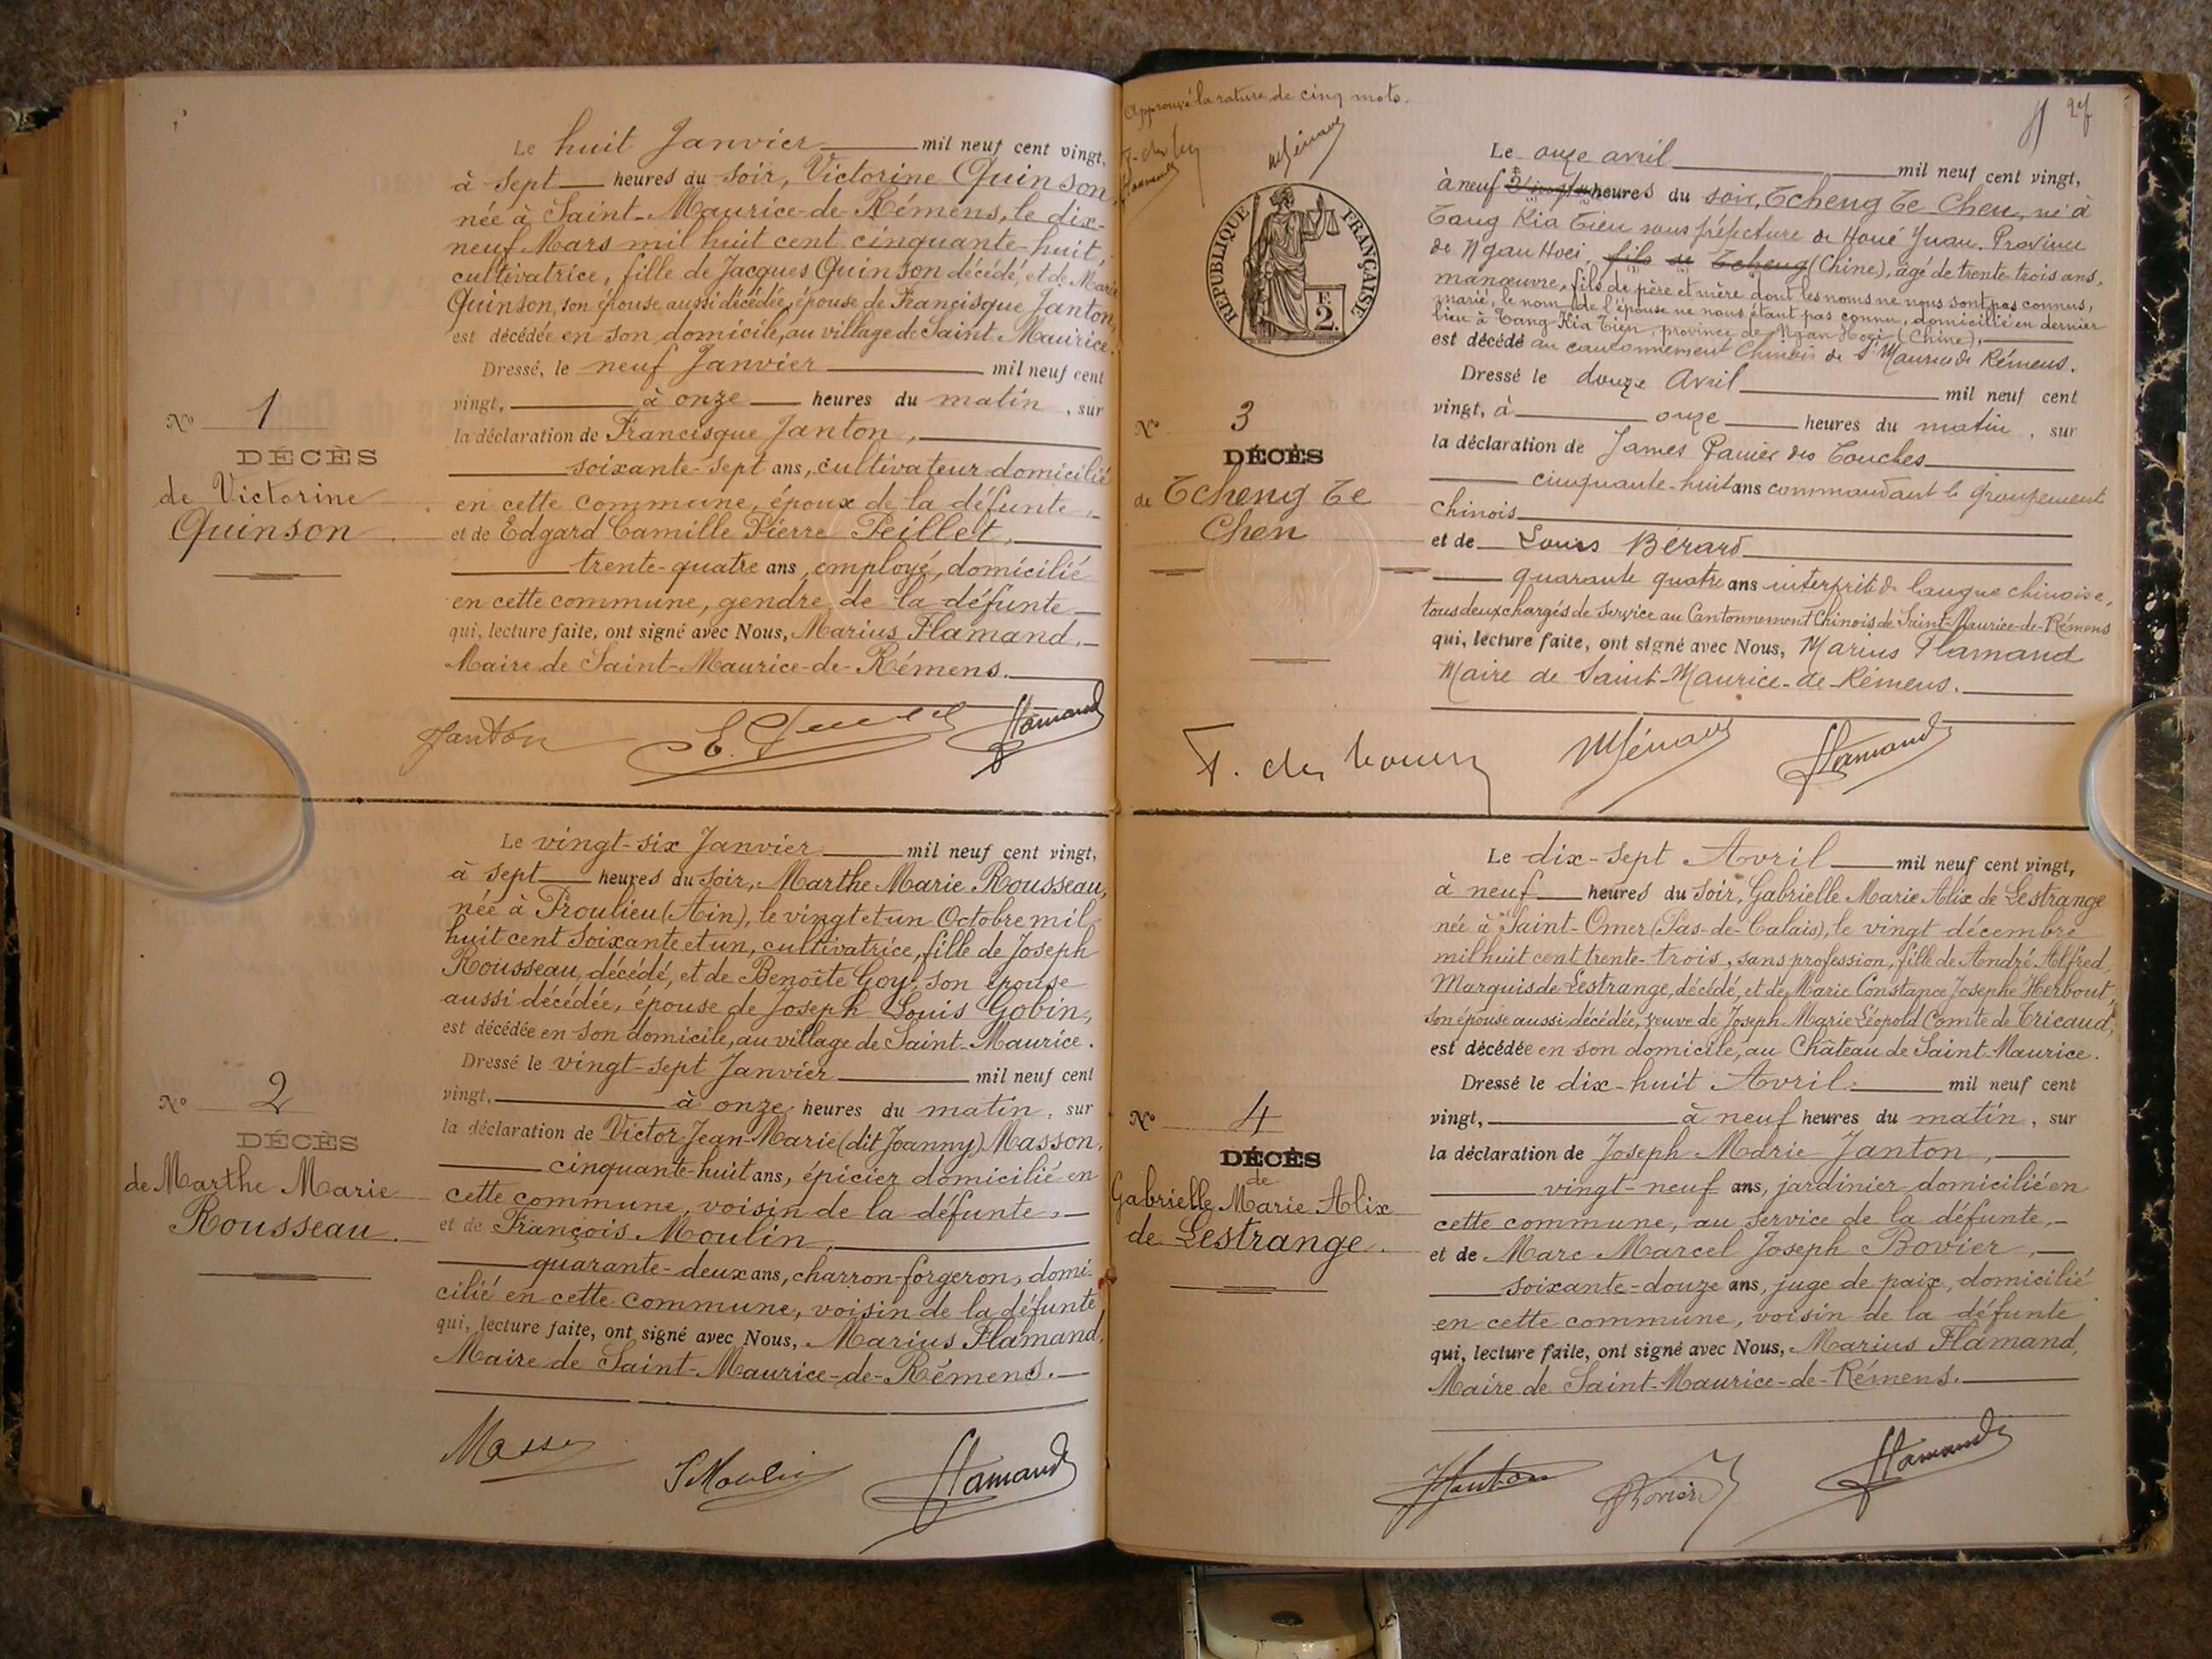 Le huit Janvier mil neuf cent vingt,
à sept heures du soir, Victorine Quinson,
née à Saint-Maurice-de-Rémens, le dix-
neuf Mars mil huit cent cinquante-huit,
cultivatrice, fille de Jacques Quinson décédé, et de Marie
Quinson, son épouse aussi décédée, épouse de Francisque Janton,
est décédée en son domicile, au village de Saint Maurice.
Dressé, le neuf Janvier mil neuf cent
vingt, à onze heures du matin, sur
la déclaration de Francisque Janton,
soixante-sept ans, cultivateur domicilié
en cette commune, époux de la défunte,
et de Edgard Camille Pierre Peillet,
trente-quatre ans, employé, domicilié
en cette commune, gendre de la défunte
qui, lecture faite, ont signé avec Nous, Marius Flamand,
Maire de Saint-Maurice-de-Rémens.
Nº 1
DÉCÈS
de Victorine
Quinson
Janton Flamand
Le vingt-six Janvier mil neuf cent vingt,
à sept heures du soir, Marthe Marie Rousseau,
née à Proulieu (Ain), le vingt et un Octobre mil
huit cent soixante et un, cultivatrice, fille de Joseph
Rousseau, décédé, et de Benoîte Goy, son épouse
aussi décédée, épouse de Joseph Louis Gobin,
est décédée en son domicile, au village de Saint-Maurice.
Dressé le vingt-sept Janvier mil neuf cent
vingt, à onze heures du matin, sur
la déclaration de Victor Jean-Marie (dit Joanny) Masson,
cinquante-huit ans, épicier domicilié en
cette commune, voisin de la défunte,
et de François Moulin,
quarante-deux ans, charron-forgeron, domi-
cilié en cette commune, voisin de la défunte
qui, lecture faite, ont signé avec Nous, Marius Flamand,
Maire de Saint-Maurice-de-Rémens.
Nº 2
DÉCÈS
de Marthe Marie
Rousseau.
Masson Moulin Flamand
Approuvé la rature de cinq mots.
RÉPUBLIQUE FRANÇAISE
2F
Le onze avril mil neuf cent vingt,
à neuf heures du soir, Tcheng Te Chen, né à
Tang Kia Tien sous préfecture de Houé Yuan. Province
de Ngan Hoei, fils de Tcheng (Chine), âgé de trente-trois ans,
manœuvre, fils de père et mère dont les noms ne nous sont pas connus,
marié, le nom de l'épouse ne nous étant pas connu, domicilié en dernier
lieu à Tang Kia Tien, province de Ngan Hoei (Chine),
est décédé au cantonnement Chinois de St Maurice de Rémens.
Dressé le douze Avril mil neuf cent
vingt, à onze heures du matin, sur
la déclaration de James Panier des Touches
cinquante-huit ans commandant le groupement
Chinois
et de Louis Bérard
quarante quatre ans interprète de langue chinoise,
tous deux chargés de service au Cantonnement Chinois de Saint-Maurice-de-Rémens
qui, lecture faite, ont signé avec Nous, Marius Flamand
Maire de Saint-Maurice-de-Rémens.
Nº 3
DÉCÈS
de Tcheng Te
Chen
Flamand
Le dix-sept Avril mil neuf cent vingt,
à neuf heures du soir, Gabrielle Marie Alix de Lestrange
née à Saint-Omer (Pas-de-Calais), le vingt décembre
mil huit cent trente-trois, sans profession, fille de André Alfred,
Marquis de Lestrange, décédé, et de Marie Constance Josephe Herbout,
son épouse aussi décédée, veuve de Joseph Marie Léopold Comte de Tricaud,
est décédée en son domicile, au Château de Saint-Maurice.
Dressé le dix-huit Avril mil neuf cent
vingt, à neuf heures du matin, sur
la déclaration de Joseph Marie Janton,
vingt-neuf ans, jardinier domicilié en
cette commune, au service de la défunte,
et de Marc Marcel Joseph Bovier,
soixante-douze ans, juge de paix, domicilié
en cette commune, voisin de la défunte
qui, lecture faite, ont signé avec Nous, Marius Flamand,
Maire de Saint-Maurice-de-Rémens.
Nº 4
DÉCÈS
de
Gabrielle Marie Alix
de Lestrange.
Janton Bovier Flamand